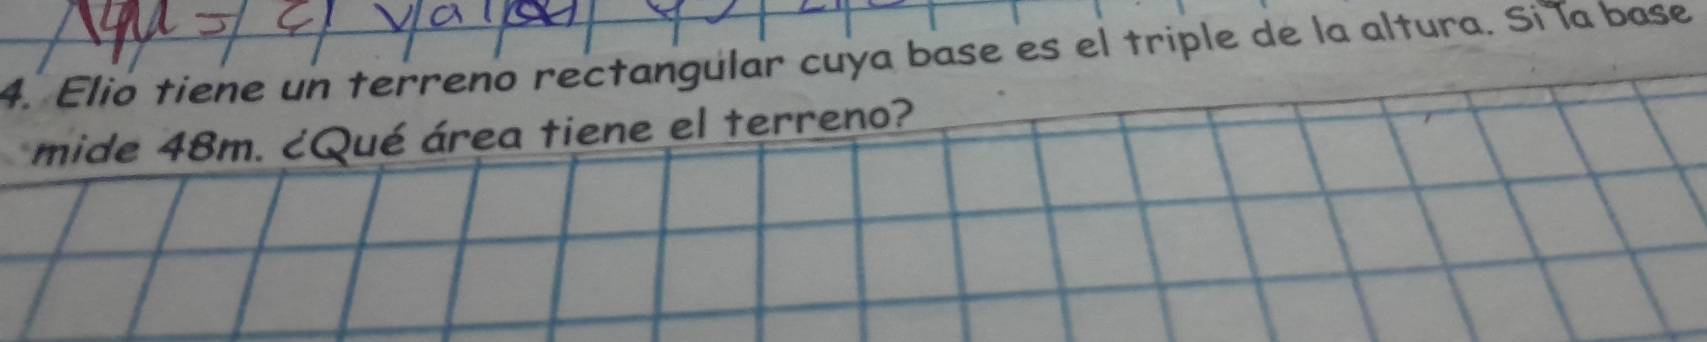 4. Elio tiene un terreno rectangular cuya base es el triple de la altura. Si la base
mide 48m. ¿Qué área tiene el terreno?